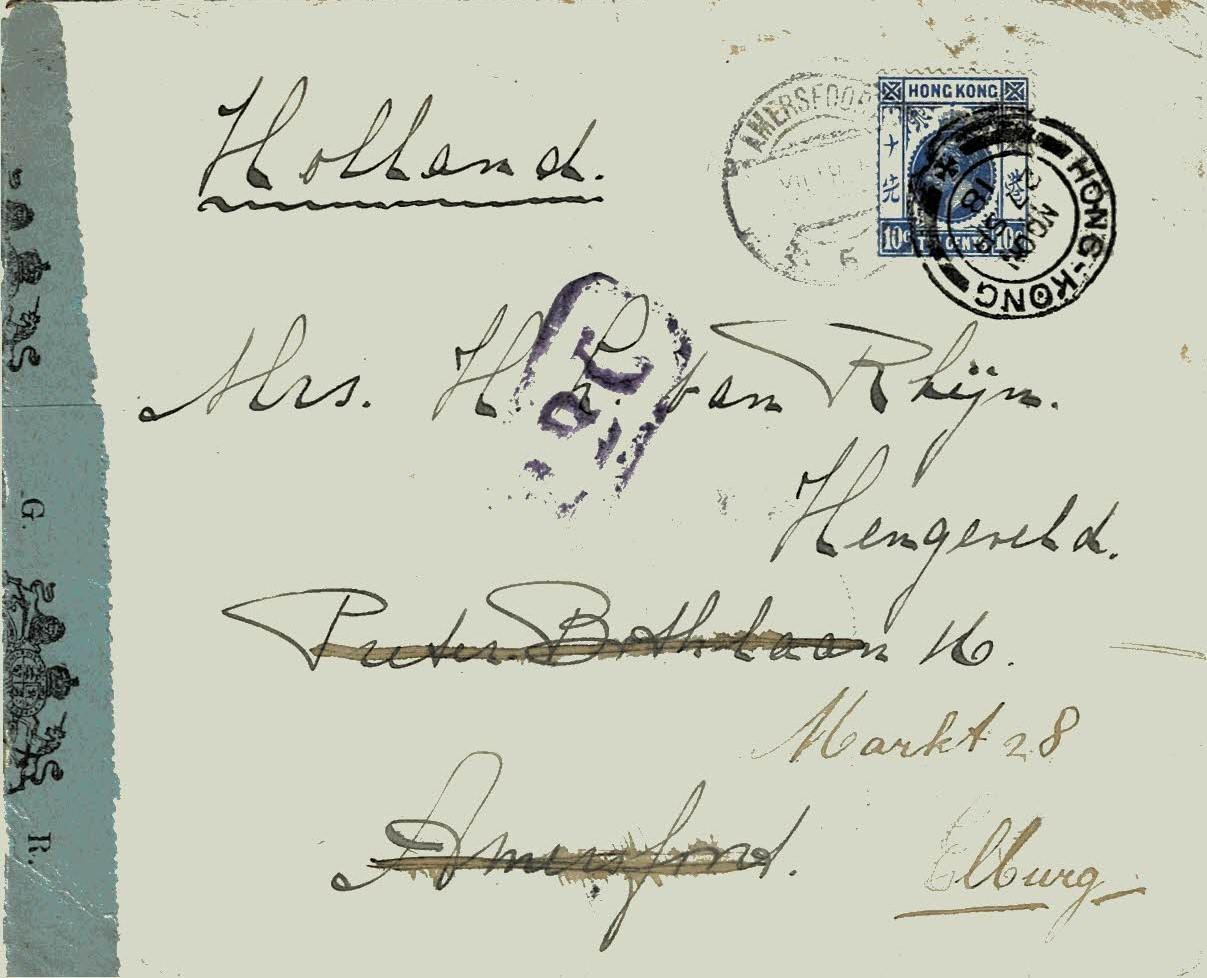 Holland.
AMERSFOOR
5
HONG KONG
十
先
港
10C TEN CENTS 10C
HONG-KONG
NOON
18 SP
Mrs. H. L. van Rhijn.
Hengeveld.
Pieter Bothlaan 16.
Markt 28
Amersfoort.
Elburg
G.
R.